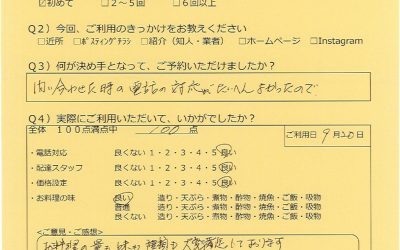 ☑初めて □2～5回 □6回以上
Q2）今回、ご利用のきっかけをお教えください
□近所 □ﾎﾟｽﾃｨﾝｸﾞﾁﾗｼ □紹介（知人・業者） □ホームページ □Instagram
Q3）何が決め手となって、ご予約いただけましたか？
問い合わせた時の電話の対応がたいへんよかったので
Q4）実際にご利用いただいて、いかがでしたか？
全体 100点満点中 100 点
ご利用日 9月20日
・電話対応 良くない 1・2・3・4・5 良い
・配達スタッフ 良くない 1・2・3・4・5 良い
・価格設定 良くない 1・2・3・4・5 良い
・お料理の味 良い 造り・天ぷら・煮物・酢物・焼魚・ご飯・吸物
普通 造り・天ぷら・煮物・酢物・焼魚・ご飯・吸物
良くない 造り・天ぷら・煮物・酢物・焼魚・ご飯・吸物
<ご意見・ご感想>
お料理の量も味も種類も大変満足しております